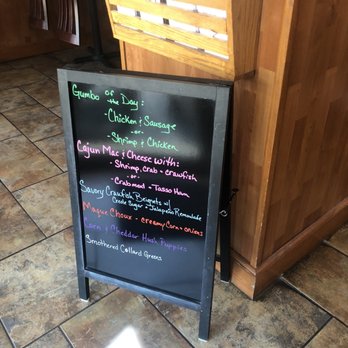 Gumbo of
the Day:
- Chicken & Sausage
- or -
- Shrimp & Chicken
Cajun Mac & Cheese with:
- Shrimp, crab & crawfish
- or -
- Crabmeat & Tasso Ham
Savory Crawfish Beignets w/
Creole Sugar & Jalapeño Remoulade
Maque Choux - creamy Corn & onions
Corn & Chedder Hush Puppies
Smothered Collard Greens